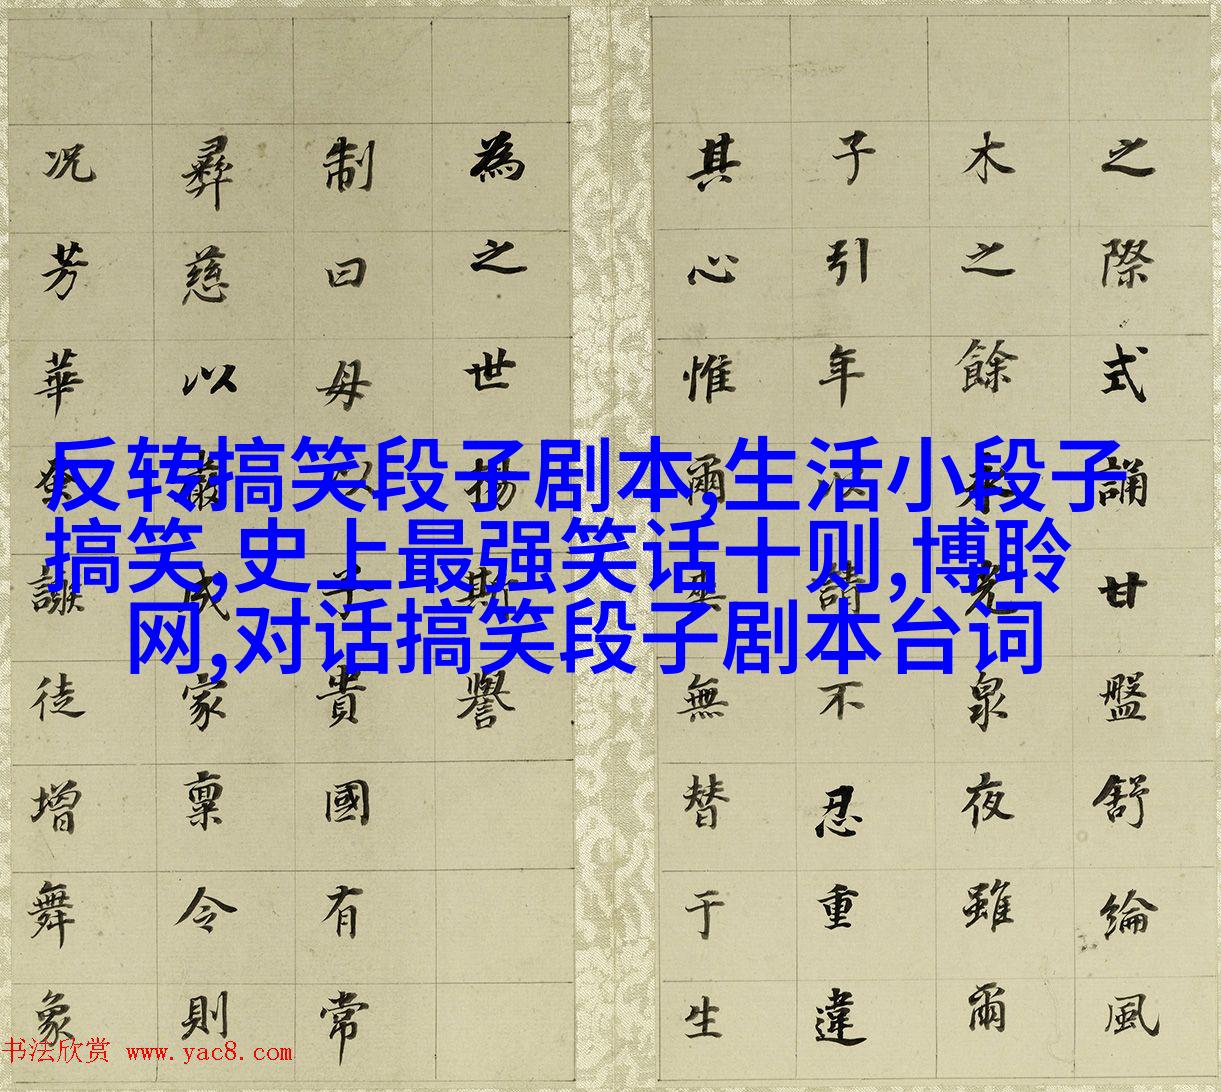 反转搞笑段子剧本,生活小段子
搞笑,史上最强笑话十则,博聆
网,对话搞笑段子剧本台词
之際式誦甘盤舒綸風
木之餘光泉夜雖爾
子引年以請不忍重違
其心惟爾無替于生
為之世揚斯譽
制曰母以子貴國有常
彝慈以嚴成家稟令則
况芳華謝徒增舞象
书法欣赏 www.yac8.com